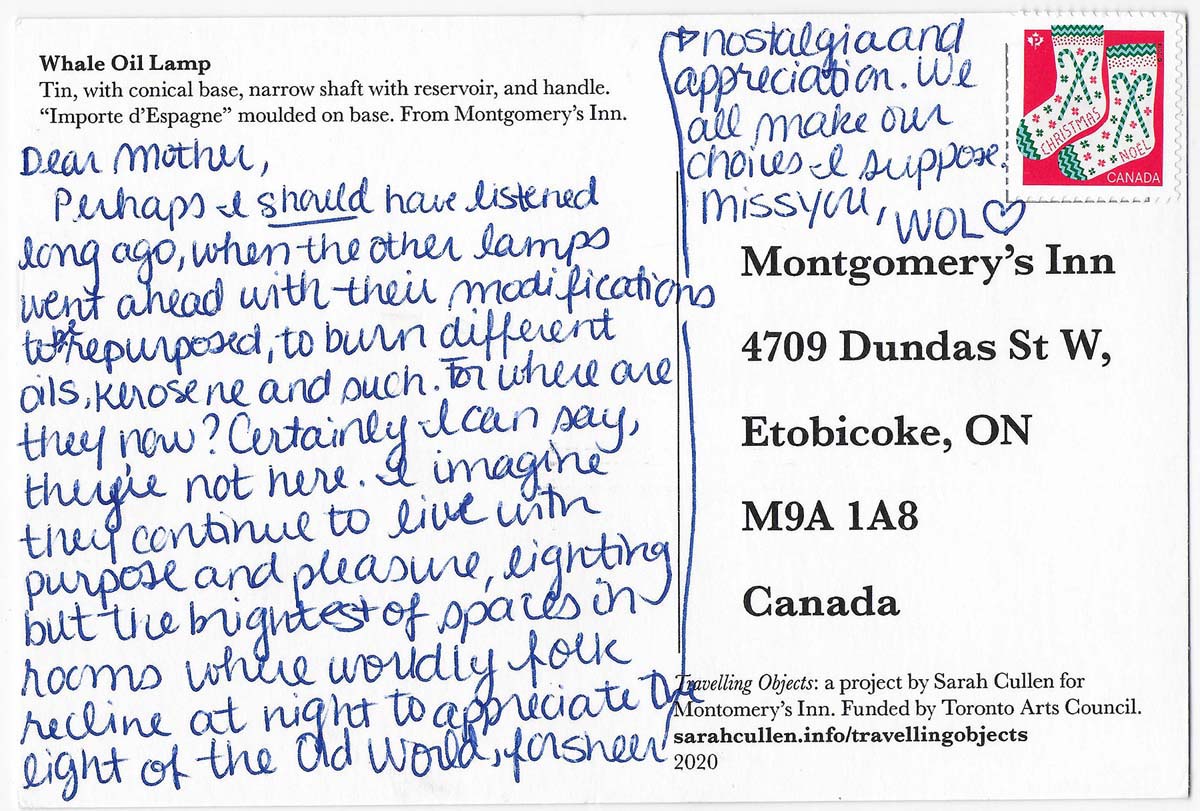 Whale Oil Lamp
Tin, with conical base, narrow shaft with reservoir, and handle.
“Importe d’Espagne” moulded on base. From Montgomery’s Inn.
Dear Mother,
Perhaps I should have listened
long ago, when the other lamps
went ahead with their modifications
to be repurposed, to burn different
oils, kerosene and such. For where are
they now? Certainly I can say,
they're not here. I imagine
they continue to live with
purpose and pleasure, lighting
but the brightest of spaces in
rooms where worldly folk
recline at night to appreciate the
light of the Old World, for sheer
nostalgia and
appreciation. We
all make our
choices I suppose.
miss you,
WOL
CHRISTMAS
NOEL
CANADA
Montgomery’s Inn
4709 Dundas St W,
Etobicoke, ON
M9A 1A8
Canada
Travelling Objects: a project by Sarah Cullen for
Montomery’s Inn. Funded by Toronto Arts Council.
sarahcullen.info/travellingobjects
2020